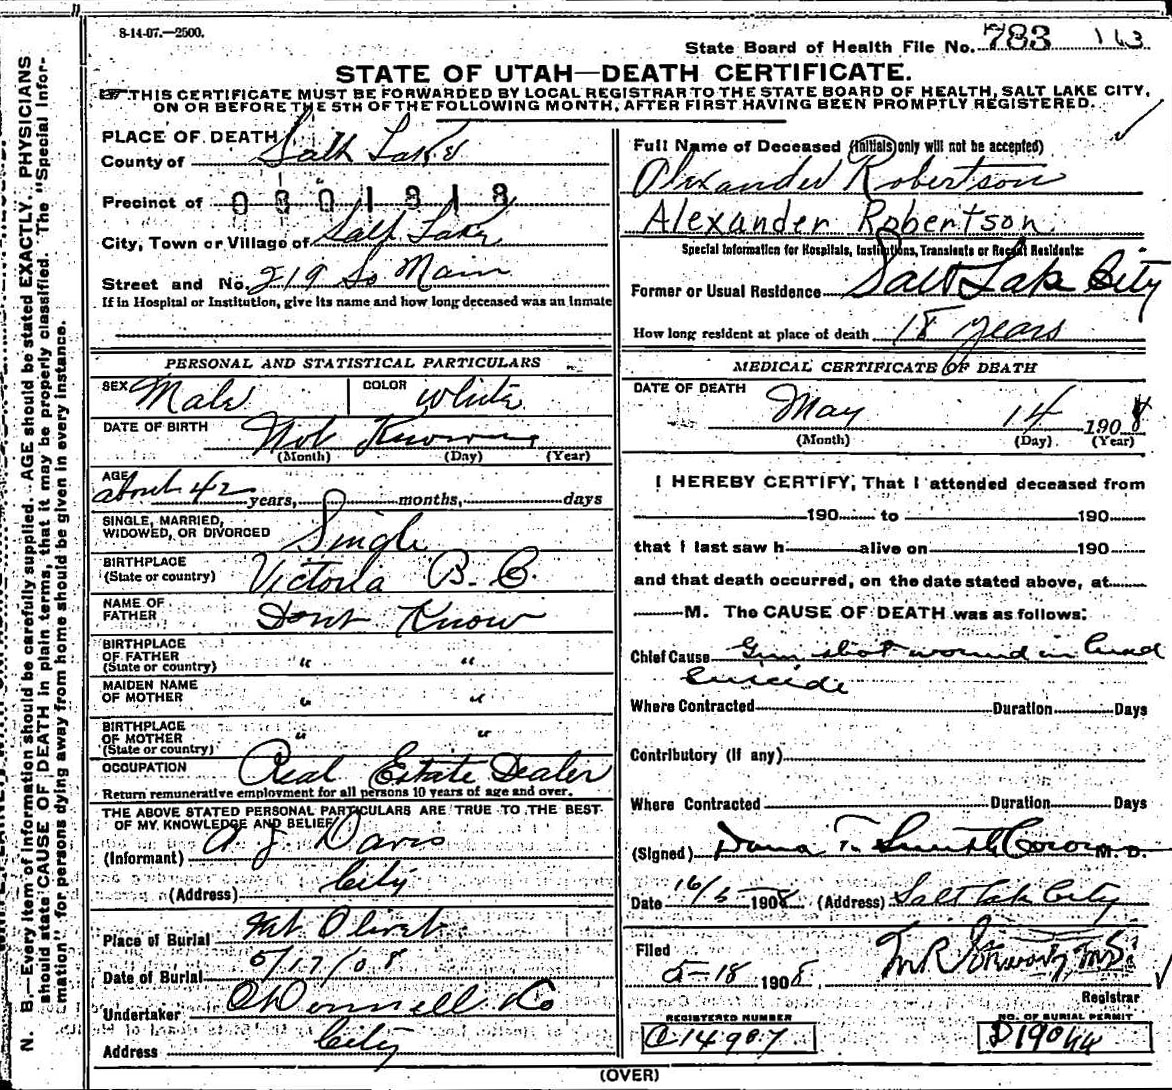 8-14-07.—2500.
State Board of Health File No. 783 163
STATE OF UTAH—DEATH CERTIFICATE.
THIS CERTIFICATE MUST BE FORWARDED BY LOCAL REGISTRAR TO THE STATE BOARD OF HEALTH, SALT LAKE CITY,
ON OR BEFORE THE 5TH OF THE FOLLOWING MONTH, AFTER FIRST HAVING BEEN PROMPTLY REGISTERED.
PLACE OF DEATH
County of Salt Lake
Precinct of 0301318
City, Town or Village of Salt Lake
Street and No. 219 So Main
If in Hospital or Institution, give its name and how long deceased was an inmate
Full Name of Deceased (Initials only will not be accepted)
Alexander Robertson
Alexander Robertson
Special Information for Hospitals, Institutions, Transients or Recent Residents:
Former or Usual Residence Salt Lake City
How long resident at place of death 18 years
PERSONAL AND STATISTICAL PARTICULARS
SEX Male COLOR White
DATE OF BIRTH Not Known
(Month) (Day) (Year)
AGE
about 42 years, months, days
SINGLE, MARRIED,
WIDOWED, OR DIVORCED Single
BIRTHPLACE
(State or country) Victoria B. C.
NAME OF
FATHER Dont Know
BIRTHPLACE
OF FATHER
(State or country) " "
MAIDEN NAME
OF MOTHER " "
BIRTHPLACE
OF MOTHER
(State or country) " "
OCCUPATION Real Estate Dealer
Return remunerative employment for all persons 10 years of age and over.
THE ABOVE STATED PERSONAL PARTICULARS ARE TRUE TO THE BEST
OF MY KNOWLEDGE AND BELIEF
(Informant) A J Davis
(Address) City
Place of Burial Mt Olivet
Date of Burial 5/17/08
Undertaker O'Donnell & Co
Address City
MEDICAL CERTIFICATE OF DEATH
DATE OF DEATH May 14 1908
(Month) (Day) (Year)
I HEREBY CERTIFY, That I attended deceased from
190 to 190
that I last saw h alive on 190
and that death occurred, on the date stated above, at
M. The CAUSE OF DEATH was as follows:
Chief Cause Gun shot wound in head
Suicide
Where Contracted Duration Days
Contributory (if any)
Where Contracted Duration Days
(Signed) Dana T. Smith Coroner M. D.
Date 16/5 1908 (Address) Salt Lake City
Filed
5-18 1908
Registrar
REGISTERED NUMBER
C14907
NO. OF BURIAL PERMIT
D19044
(OVER)
N. B—Every item of information should be carefully supplied. AGE should be stated EXACTLY. PHYSICIANS
should state CAUSE OF DEATH in plain terms, that it may be properly classified. The "Special Infor-
mation" for persons dying away from home should be given in every instance.